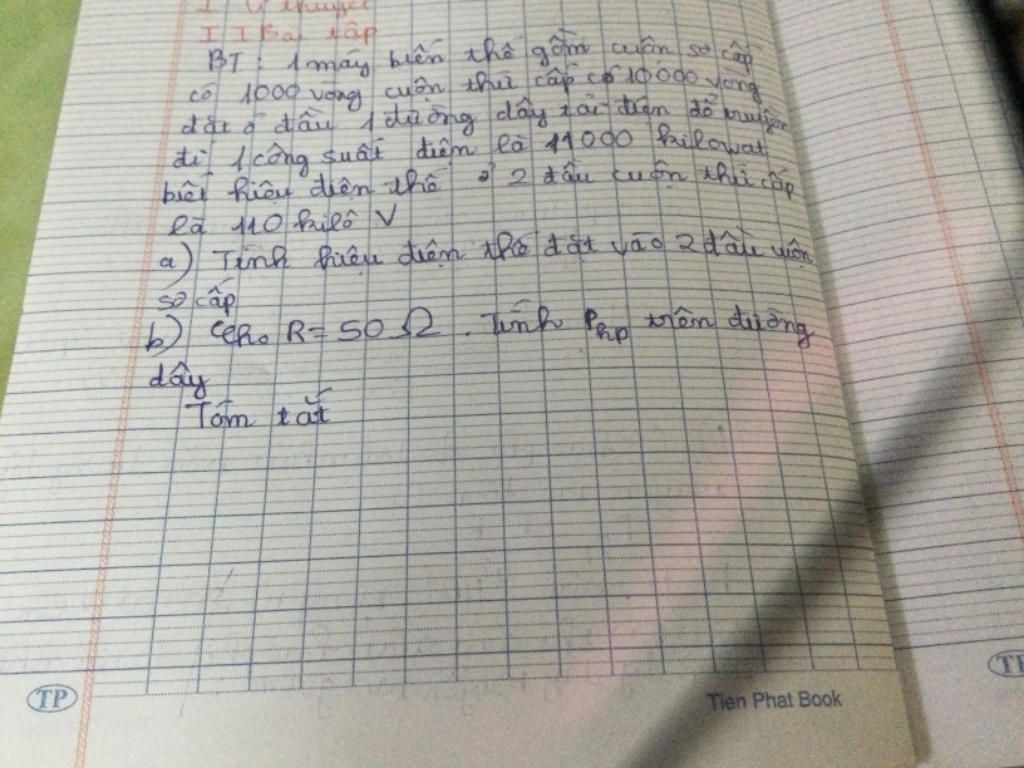 II Bài tập
BT : 1 máy biến thế gồm cuộn sơ cấp
có 1000 vòng cuộn thứ cấp có 10000 vòng
đặt ở đầu 1 đường dây tải điện để truyền
đi 1 công suất điện là 11000 kilowat
biết hiệu điện thế ở 2 đầu cuộn thứ cấp
là 110 kilô V
a) Tính hiệu điện thế đặt vào 2 đầu cuộn
sơ cấp
b) Cho R = 50 Ω . Tính P hp trên đường
dây
Tóm tắt
TP
Tien Phat Book